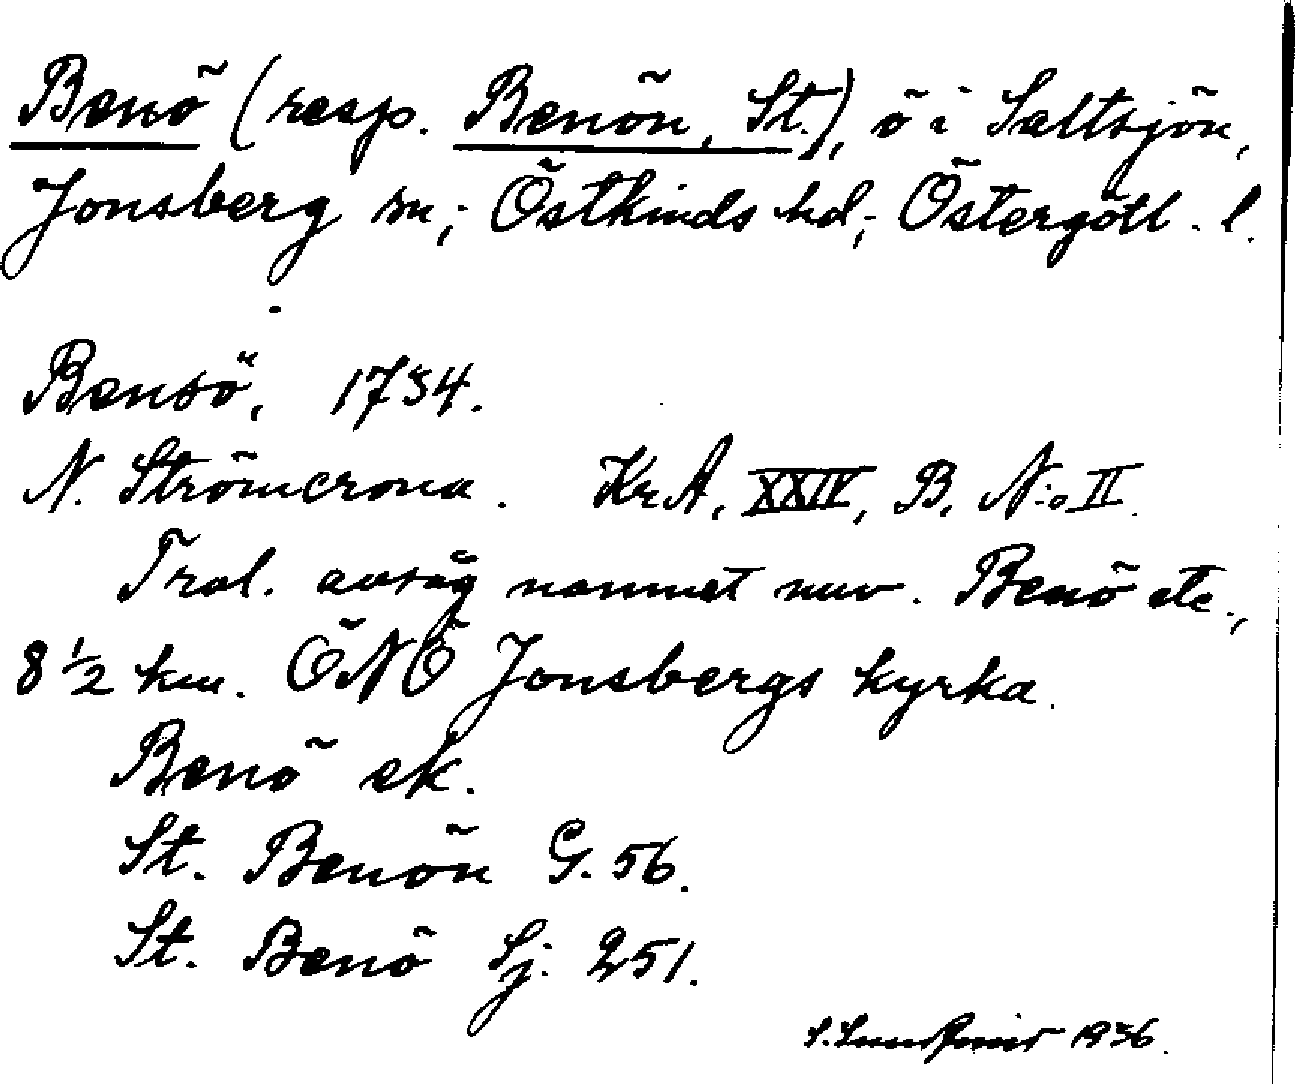 Benö (resp. Benön, St.), ö i Saltsjön,
Jonsberg sn; Östkinds hd; Östergötl. l.
Bensö, 1734.
N. Strömcrona. KrA, XXIV, B, N:o II.
Trol. avsåg namnet nuv. Benö etc.,
8 1/2 km. ÖNÖ Jonsbergs kyrka.
Benö ek.
St. Benön G. 56.
St. Benö Sj. 251.
S. Lundqvist 1936.